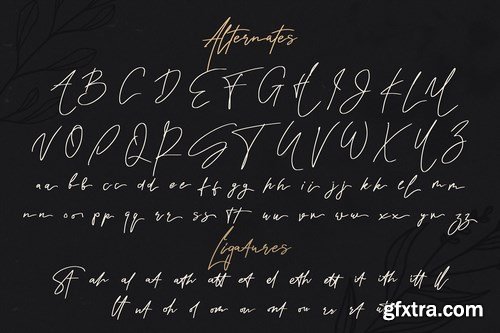 Alternates
A B C D E F G H I J K L M
N O P Q R S T U V W X Y Z
aa bb cc dd ee ff gg hh ii jj kk ll mm
nn oo pp qq rr ss tt uu vv ww xx yy zz
Ligatures
St ah al at ath att et el eth ett it ith itt ll
lt ot oh ol om on ont ou rs rt ut
gfxtra.com